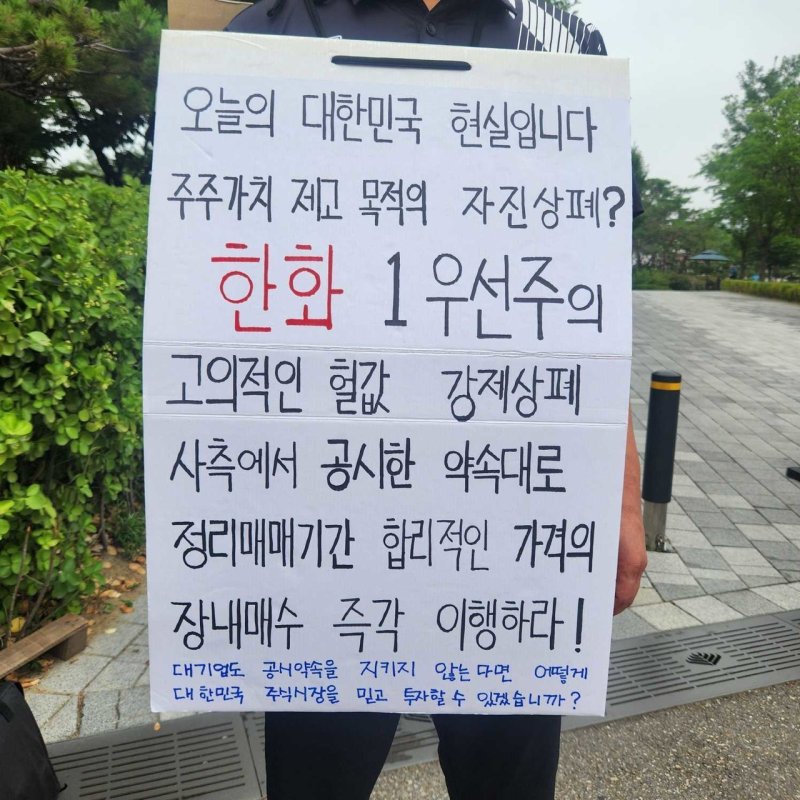 오늘의 대한민국 현실입니다
주주가치 제고 목적의 자진상폐?
한화 1우선주의
고의적인 헐값 강제상폐
사측에서 공시한 약속대로
정리매매기간 합리적인 가격의
장내매수 즉각 이행하라!
대기업도 공시약속을 지키지 않는다면 어떻게
대한민국 주식시장을 믿고 투자할 수 있겠습니까?